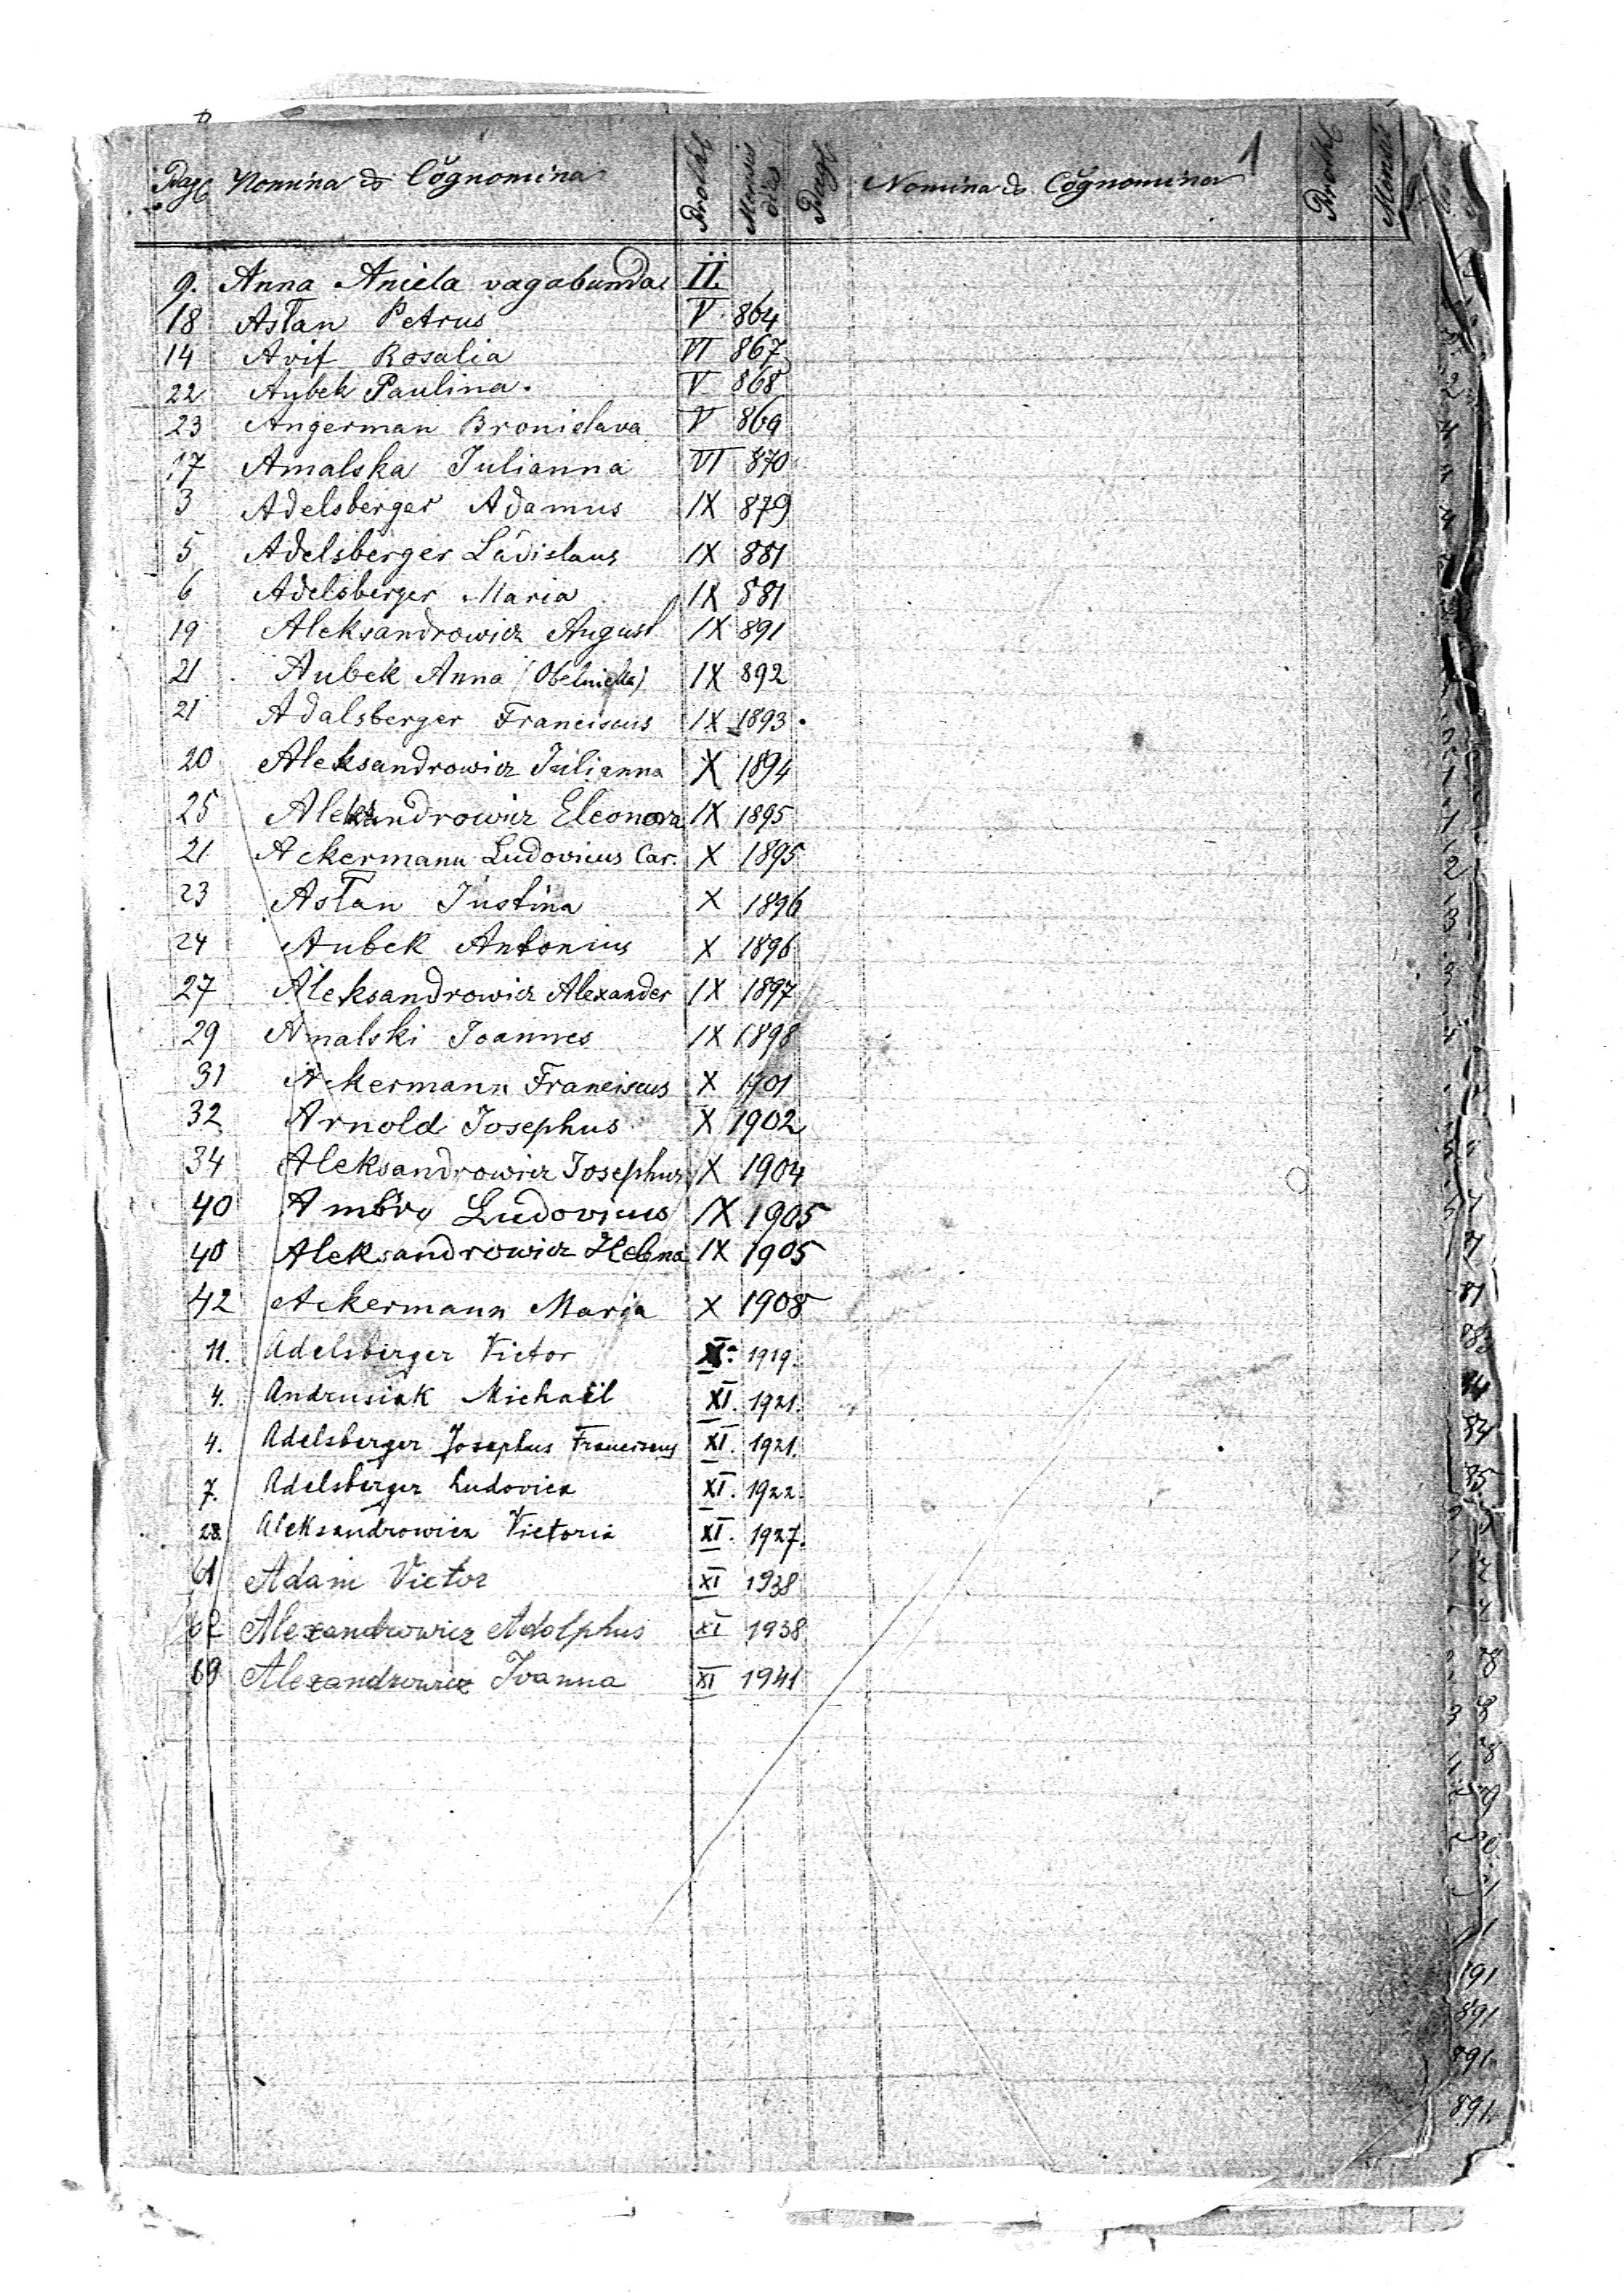 1
Pag. Nomina & Cognomina Protkl Mensis dies Pag. Nomina & Cognomina Protkl
9. Anna Aniela vagabunda II.
18 Astan Petrus V 864
14 Avif Rosalia VI 867
22 Aybek Paulina. V 868
23 Angerman Bronislava V 869
17 Amalska Julianna VI 870
3 Adelsberger Adamus IX 879
5 Adelsberger Ladislaus IX 881
6 Adelsberger Maria IX 881
19 Aleksandrowicz August IX 891
21 Aubek Anna IX 892
21 Adalsberger Franciscus IX 1893
20 Aleksandrowicz Julianna X 1894
25 Aleksandrowicz Eleonora IX 1895
21 Ackermann Ludovicus Car. X 1895
23 Astan Justina X 1896
24 Aubek Antonius X 1896
27 Aleksandrowicz Alexander IX 1897
29 Amalski Joannes IX 1898
31 Ackermann Franciscus X 1901
32 Arnold Josephus X 1902
34 Aleksandrowicz Josephus X 1904
40 Ambry Ludovicus IX 1905
40 Aleksandrowicz Helena IX 1905
42 Ackermann Maria X 1908
11. Adelsberger Victor 1919.
4. Andrusiak Michaël XI. 1921.
4. Adelsberger Josephus Franciscus XI. 1921.
7. Adelsberger Ludovica XI. 1922.
28. Aleksandrowicz Victoria XI. 1927.
61 Adam Victor XI 1938
62 Alexandrowicz Adolphus XI 1938
69 Alexandrowicz Joanna XI 1941
891
891
891